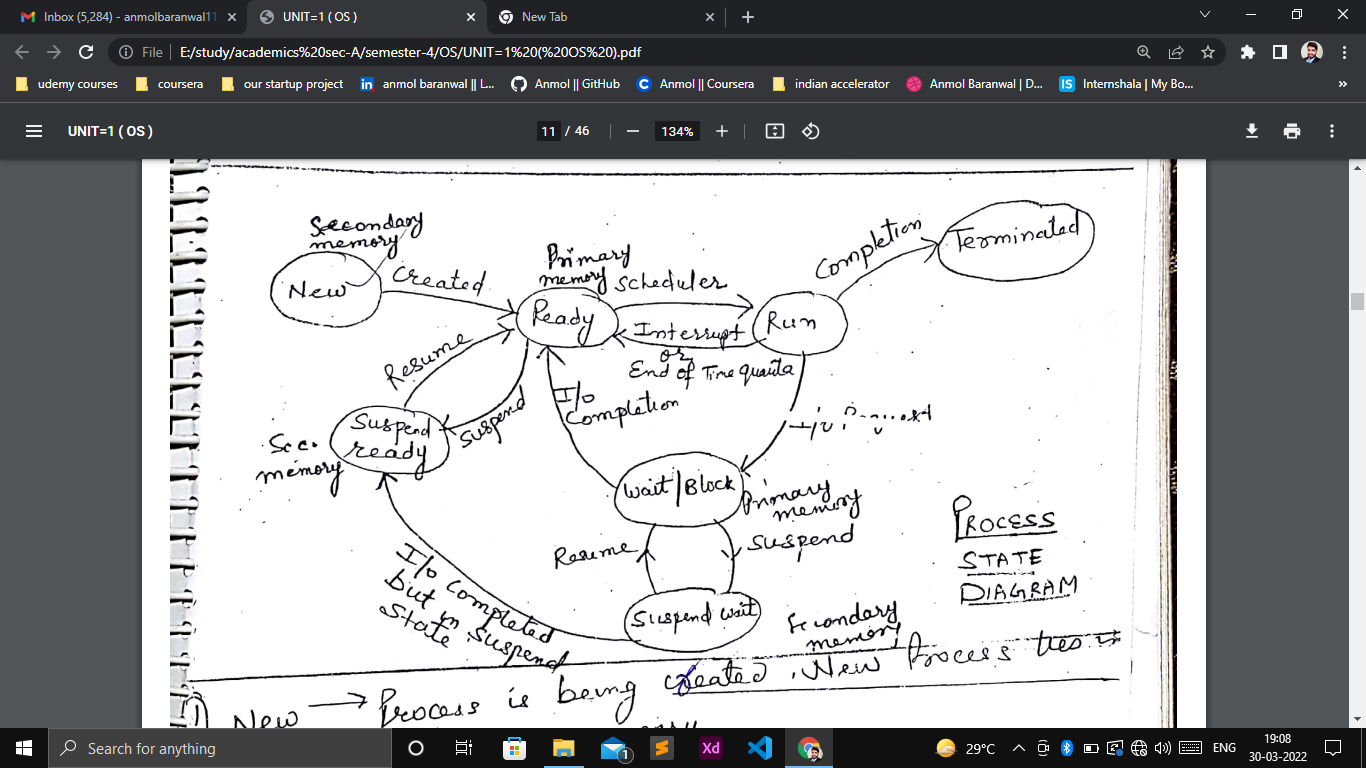 Inbox (5,284) - anmolbaranwal11
UNIT=1 ( OS )
New Tab
File
E:/study/academics%20sec-A/semester-4/OS/UNIT=1%20(%20OS%20).pdf
udemy courses
coursera
our startup project
anmol baranwal || L...
Anmol || GitHub
Anmol || Coursera
indian accelerator
Anmol Baranwal | D...
Internshala | My Bo...
»
UNIT=1 ( OS )
11 / 46
134%
Secondary
memory
New
Created
Primary
memory
Ready
Scheduler
Interrupt
or
End of Time quanta
Run
Completion
Terminated
Resume
Suspend
Suspend
ready
Sec.
memory
I/o
Completion
Wait/Block
Primary
memory
Resume
Suspend
Suspend wait
Secondary
memory
I/o Completed
but in Suspend
State
PROCESS
STATE
DIAGRAM
1) New → Process is being created. New Process
Search for anything
1
Xd
29°C
ENG
19:08
30-03-2022